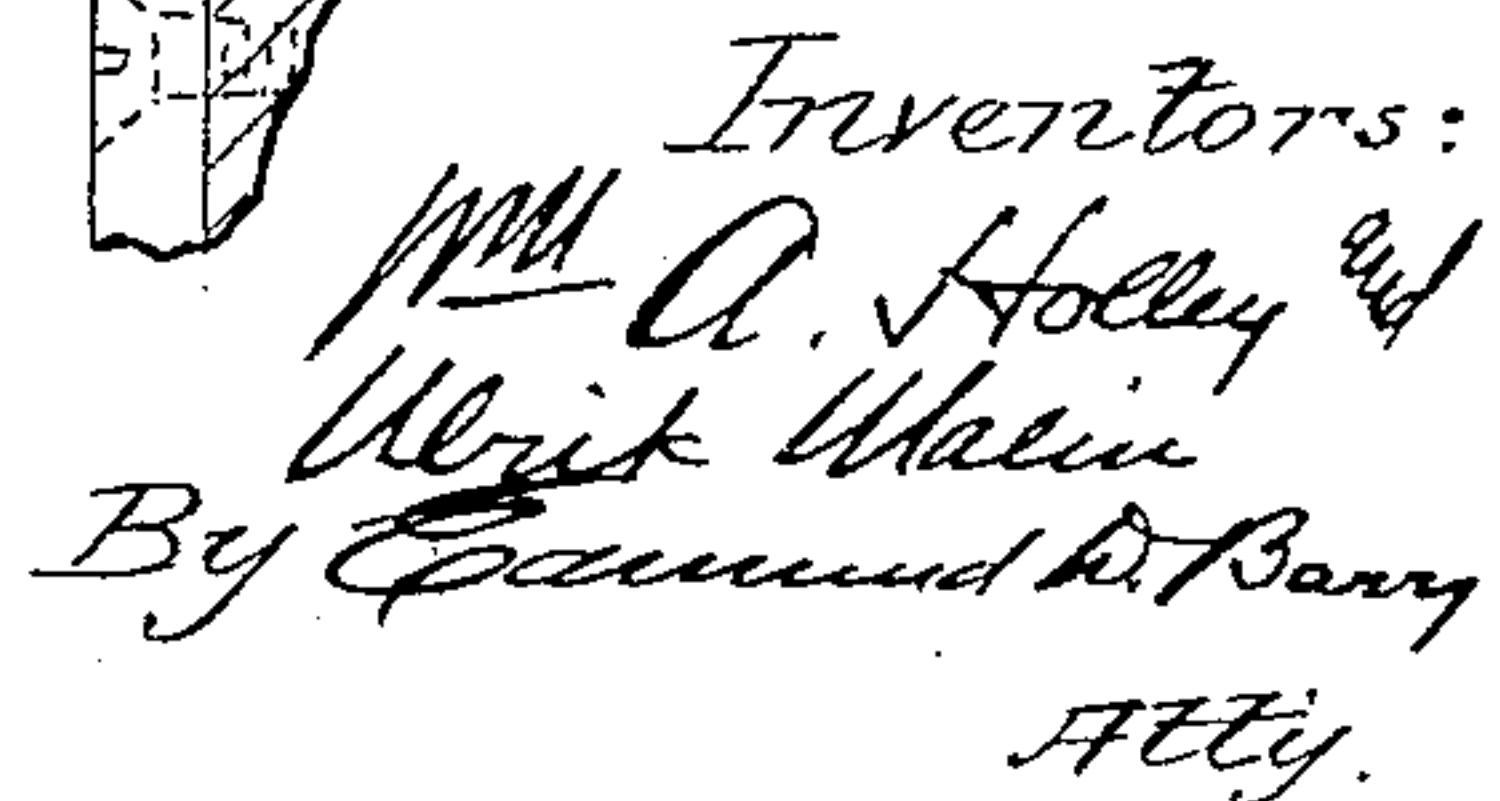 Inventors:
Wm A. Holley and
Ulrik Malin
By Edmund D. Barry
Atty.